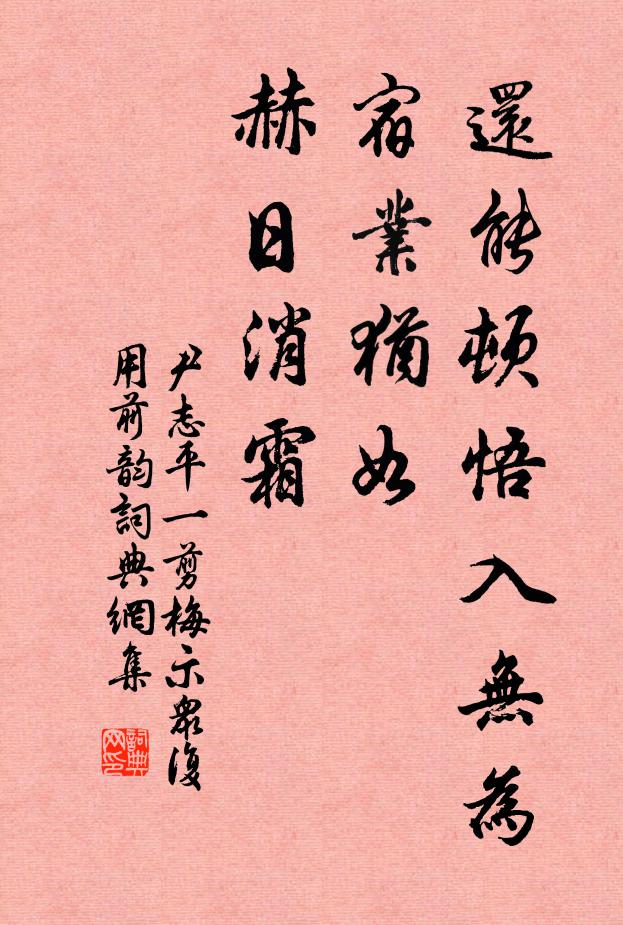 還能頓悟入無為
宿業猶如
赫日消霜
尹志平一剪梅示眾復
用前韵詞典網集
詞典
网印